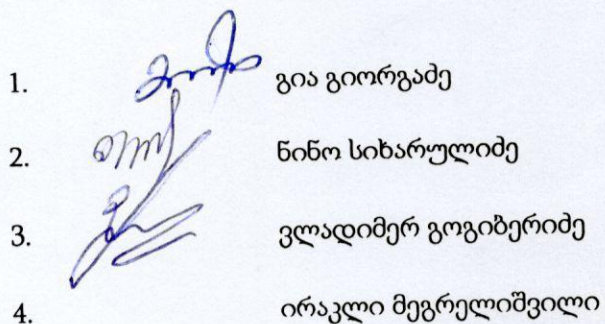 1. გია გიორგაძე
2. ნინო სიხარულიძე
3. ვლადიმერ გოგიბერიძე
4. ირაკლი მეგრელიშვილი